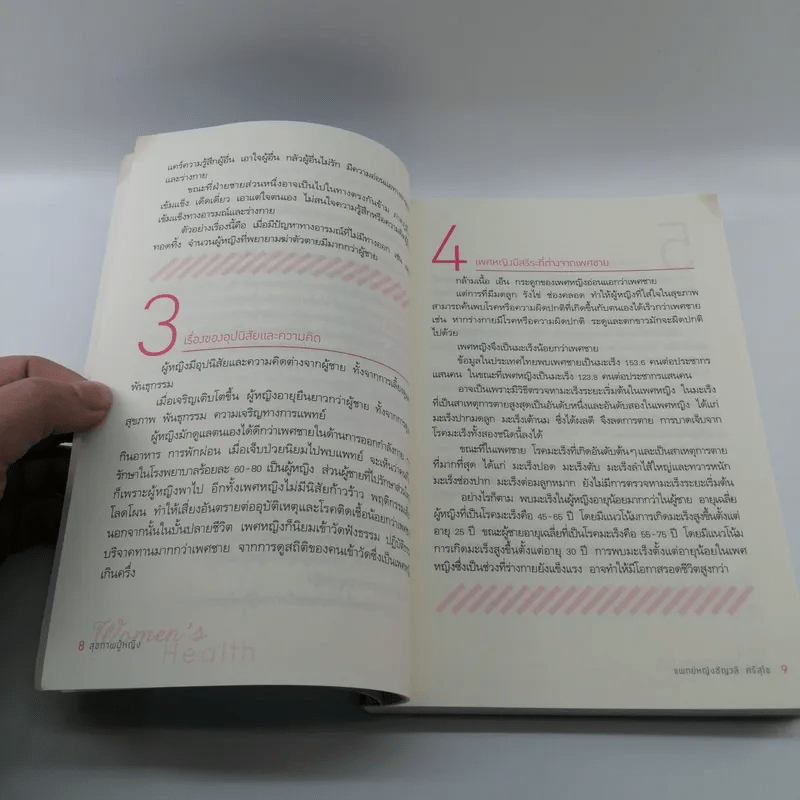 แคร์ความรู้สึกผู้อื่น เอาใจผู้อื่น กลัวผู้อื่นไม่รัก มีความอ่อนแอทาง
และร่างกาย
ขณะที่ฝ่ายชายส่วนหนึ่งอาจเป็นไปในทางตรงกันข้าม
เข้มแข็ง เด็ดเดี่ยว เอาแต่ใจตนเอง ไม่สนใจความรู้สึกหรือความ
เข้มแข็งทางอารมณ์และร่างกาย
ตัวอย่างเรื่องนี้คือ เมื่อมีปัญหาทางอารมณ์ที่ไม่มีทางออก เช่น
ทอดทิ้ง จำนวนผู้หญิงที่พยายามฆ่าตัวตายมีมากกว่าผู้ชาย
3
เรื่องของอุปนิสัยและความคิด
ผู้หญิงมีอุปนิสัยและความคิดต่างจากผู้ชาย ทั้งจากการเลี้ยงดู
พันธุกรรม
เมื่อเจริญเติบโตขึ้น ผู้หญิงอายุยืนยาวกว่าผู้ชาย ทั้งจากการ
สุขภาพ พันธุกรรม ความเจริญทางการแพทย์
ผู้หญิงมักดูแลตนเองได้ดีกว่าเพศชายในด้านการออกกำลังกาย
กินอาหาร การพักผ่อน เมื่อเจ็บป่วยนิยมไปพบแพทย์ จะเห็นว่า
รักษาในโรงพยาบาลร้อยละ 60-80 เป็นผู้หญิง ส่วนผู้ชายที่ไปรักษาส่วนใหญ่
ก็เพราะผู้หญิงพาไป อีกทั้งเพศหญิงไม่มีนิสัยก้าวร้าว พฤติกรรม
โลดโผน ทำให้เสี่ยงอันตรายต่ออุบัติเหตุและโรคติดเชื้อน้อยกว่าเพศ
นอกจากนั้นในบั้นปลายชีวิต เพศหญิงก็นิยมเข้าวัดฟังธรรม ปฏิบัติ
บริจาคทานมากกว่าเพศชาย จากการดูสถิติของคนเข้าวัดซึ่งเป็นเพศหญิง
เกินครึ่ง
Women's
Health
8 สุขภาพผู้หญิง
4
เพศหญิงมีสรีระที่ต่างจากเพศชาย
กล้ามเนื้อ เอ็น กระดูกของเพศหญิงอ่อนแอกว่าเพศชาย
แต่การที่มีมดลูก รังไข่ ช่องคลอด ทำให้ผู้หญิงที่ใส่ใจในสุขภาพ
สามารถค้นพบโรคหรือความผิดปกติที่เกิดขึ้นกับตนเองได้เร็วกว่าเพศชาย
เช่น หากร่างกายมีโรคหรือความผิดปกติ ระดูและตกขาวมักจะผิดปกติ
ไปด้วย
เพศหญิงจึงเป็นมะเร็งน้อยกว่าเพศชาย
ข้อมูลในประเทศไทยพบเพศชายเป็นมะเร็ง 153.6 คนต่อประชากร
แสนคน ในขณะที่เพศหญิงเป็นมะเร็ง 123.8 คนต่อประชากรแสนคน
อาจเป็นเพราะมีวิธีตรวจหามะเร็งระยะเริ่มต้นในเพศหญิง ในมะเร็ง
ที่เป็นสาเหตุการตายสูงสุดเป็นอันดับหนึ่งและอันดับสองในเพศหญิง ได้แก่
มะเร็งปากมดลูก มะเร็งเต้านม ซึ่งได้ผลดี จึงลดการตาย การบาดเจ็บจาก
โรคมะเร็งทั้งสองชนิดนี้ลงได้
ขณะที่ในเพศชาย โรคมะเร็งที่เกิดอันดับต้นๆและเป็นสาเหตุการตาย
ที่มากที่สุด ได้แก่ มะเร็งปอด มะเร็งตับ มะเร็งลำไส้ใหญ่และทวารหนัก
มะเร็งช่องปาก มะเร็งต่อมลูกหมาก ยังไม่มีการตรวจหามะเร็งระยะเริ่มต้น
อย่างไรก็ตาม พบมะเร็งในผู้หญิงอายุน้อยมากกว่าในผู้ชาย อายุเฉลี่ย
ผู้หญิงที่เป็นโรคมะเร็งคือ 45-65 ปี โดยมีแนวโน้มการเกิดมะเร็งสูงขึ้นตั้งแต่
อายุ 25 ปี ขณะผู้ชายอายุเฉลี่ยที่เป็นโรคมะเร็งคือ 55-75 ปี โดยมีแนวโน้ม
การเกิดมะเร็งสูงขึ้นตั้งแต่อายุ 30 ปี การพบมะเร็งตั้งแต่อายุน้อยในเพศ
หญิงซึ่งเป็นช่วงที่ร่างกายยังแข็งแรง อาจทำให้มีโอกาสรอดชีวิตสูงกว่า
แพทย์หญิงชัญวลี ศรีสุโข 9